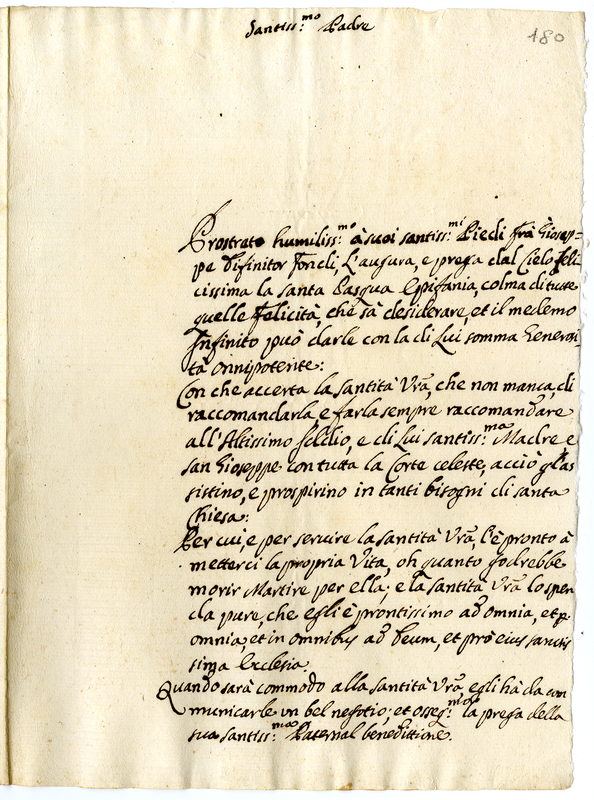 Santiss:mo Padre
180
Prostrato humiliss:mo à suoi santiss:mi Piedi frà Giosep=
pe Difinitor Toncli, L'augura, e prega dal Cielo feli
cissima la santa Pasqua Epifania, colma di tutte
quelle felicità, che sà desiderare, et il medemo
Infinito può darle con la di Lui somma Generosi=
tà onnipotente:
Con che accerta la Santità Vrã, che non manca, di
raccomandarla, e farla sempre raccomandare
all'Altissimo Iddio, e di Lui santiss:ma Madre e
san Gioseppe con tutta la Corte celeste, acciò gl'as
sistino, e prosperino in tanti bisogni di santa
Chiesa:
Per cui, e per servire la santità Vrã, l'è pronto à
metterci la propria Vita, oh quanto godrebbe
morir Martire per ella; e la santità Vrã lo spen
da pure, che egli è prontissimo ad omnia, et p.
omnia, et in omnibus ad Deum, et prò eius sanctis
sima Ecclesia.
Quando sarà commodo alla santità Vrã, egli hà da com
municarle un bel negotio; et osseq:mo la prega della
sua santiss:ma Paternal benedittione.